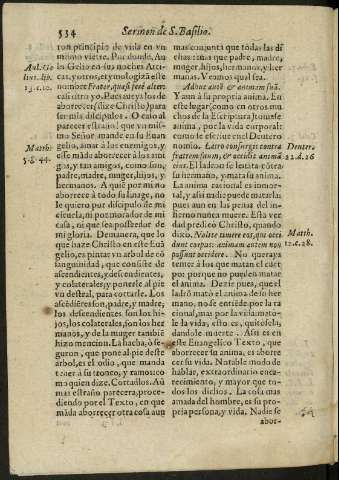 534
Sermon de S. Basilio.
ron principio de vida en vn
mismo vietre. Por dōde, Au
lo Gelio en sus noches Atti-
cas, y otros, etymologizā este
nombre Frater, quasi ferè alter:
casi otro yo. Pues aueys los de
aborrecer (dize Christo) para
ser mis discipulos. O caso al
parecer estraño! que vn mis-
mo Señor mande en su Euan
gelio, amar à los enemigos, y
esse māda aborrecer à los ami
gos, y tan amigos, como son,
padre, madre, muger, hijos, y
hermanos. A quiē por mi no
aborrece à todo su linage, no
le quiero por discipulo de mi
escuela, ni por morador de mi
casa, ni que sea posseedor de
mi gloria. Demanera, que lo
que haze Christo en este Euā
gelio, es pintar vn arbol de cō
sanguinidad, que consiste de
ascendientes, y descendientes,
y colaterales, y ponerle al pie
vn destral, para cortarle. Los
ascēdiētes son, padre, y madre,
los descendientes son los hi-
jos, los colaterales, son los her
manos, y de la muger tambiē
hizo mencion. La hacha, ò se-
guron, que pone al pie deste
arbol, es el odio, que manda
tener à su tronco, y ramos: co
mo quien dize. Cortadlos. Aū
mas estraño parecera, proce-
diendo por el Texto, en que
māda aborrecer otra cosa aun
mas conjunta que todas las di
chas: mas que padre, madre,
muger, hijos, hermanos, y her
manas. Veamos qual sea.
Adhuc autē & animam suā.
Y aun à la propria anima. En
este lugar (como en otros mu
chos de la Escriptura) tomase
anima, por la vida corporal:
como se escriue en el Deutero
nomio. Latro consurgit contra
fratrem suum, & occidit animā
eius. El ladron se leuāta cōtra
su hermano, y mata su anima.
La anima racional es inmor-
tal, y assi nadie puede matarla
pues aun en las penas del in-
fierno nunca muere. Esta ver
dad predicò Christo, quando
dixo. Nolite timere eos, qui occi
dunt corpus: animam autem non
possunt occidere. No querays
temer à los que matan el cuer
po: porque no pueden matar
el anima. Dezir pues, que el
ladrō matò el anima de su her
mano, no se entiēde por la ra-
cional, mas por la vida: matò-
le la vida, esto es, quitòsela,
dandole muerte. Assi es en
este Euangelico Texto, que
aborrecer su anima, es aborre
cer su vida. Notable modo de
hablar, extraordinario enca-
recimiento, y mayor que to-
dos los dichos. La cosa mas
amada del hombre, es su pro-
pria persona, y vida. Nadie se
abor-
Matth.
5. g. 44.
Deuter.
22. d. 26
Matth.
12. c. 28.